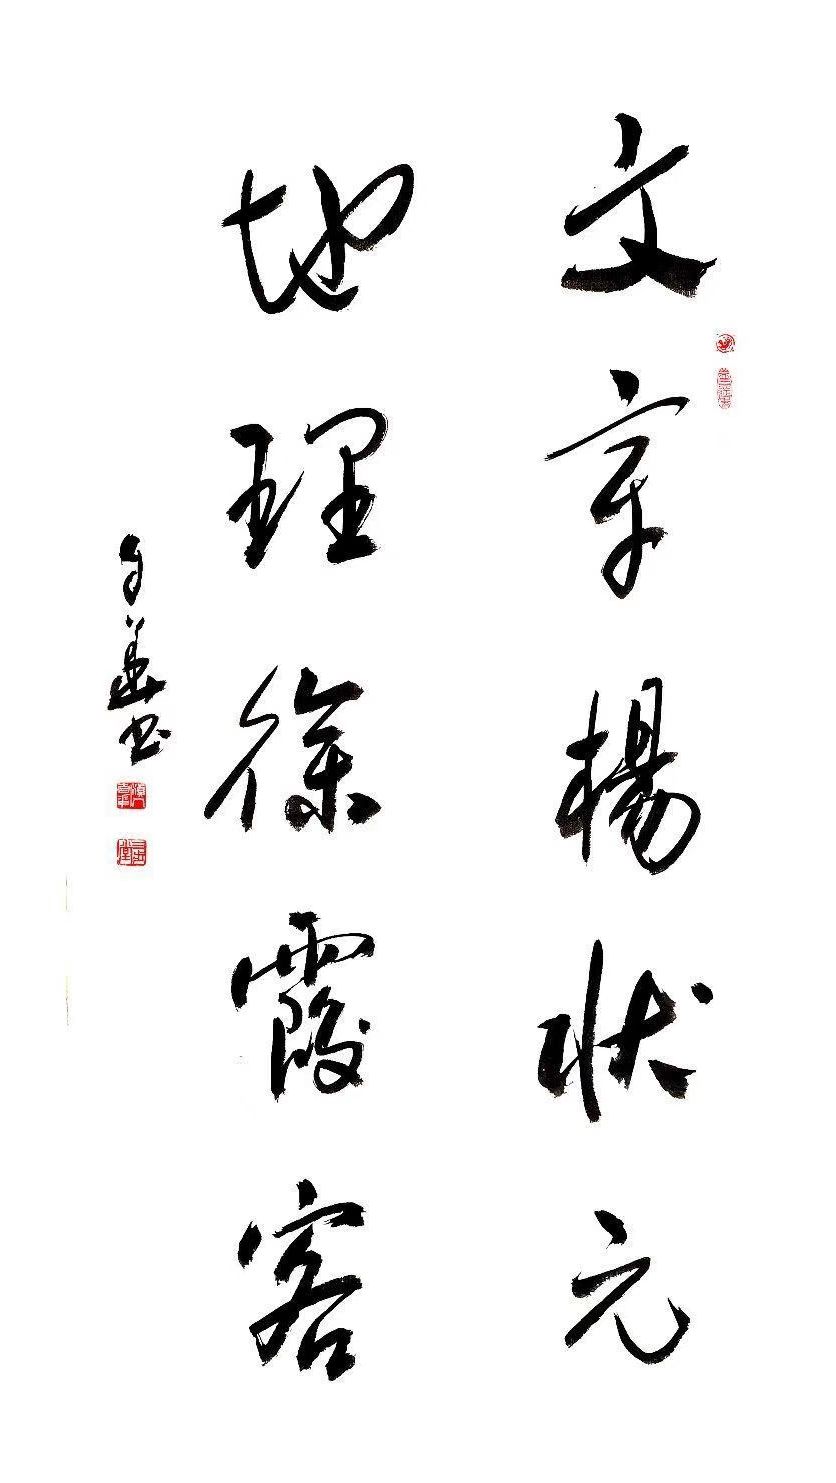 文章楊状元
地理徐霞客